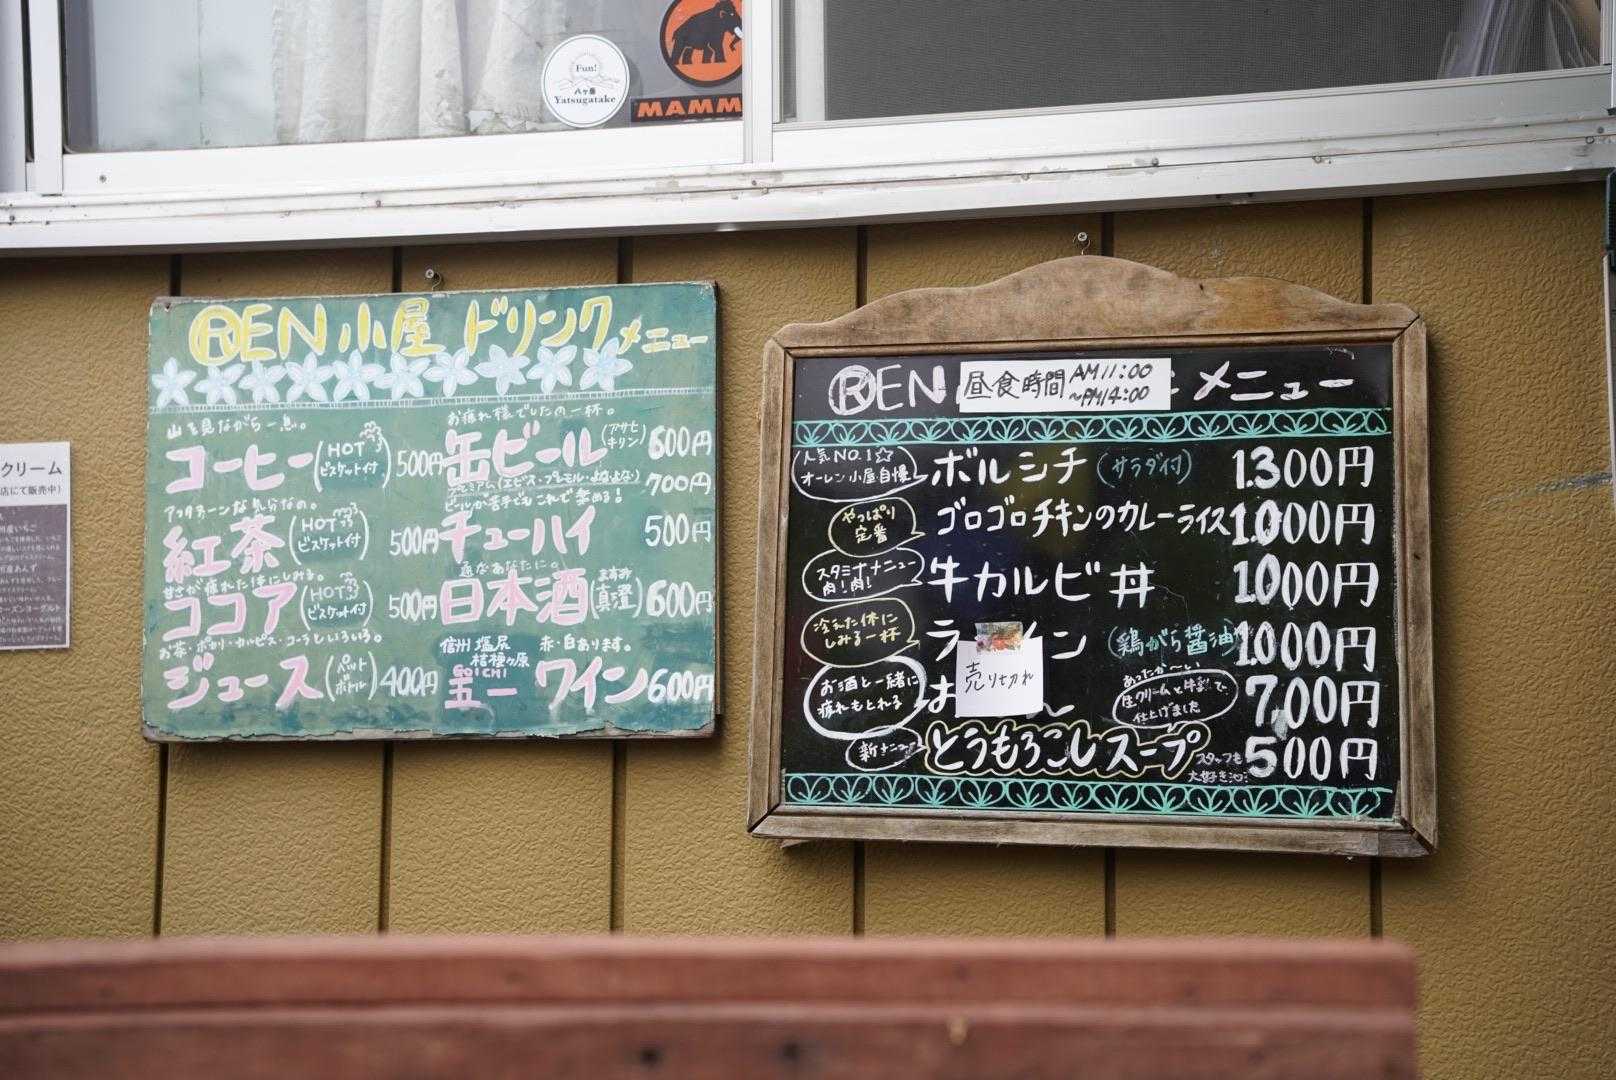 Fun!
八ヶ岳
Yatsugatake
MAMM
クリーム
店にて販売中)
®EN小屋 ドリンクメニュー
山を見ながら一息。
コーヒー (HOT ビスケット付) 500円
アフタヌーンな気分なの。
紅茶 (HOT ビスケット付) 500円
甘さが疲れた体にしみる。
ココア (HOT ビスケット付) 500円
お茶・ポカリ・カルピス・コーラといろいろ。
ジュース (ペットボトル) 400円
お疲れ様でしたの一杯。
缶ビール (アサヒ キリン) 600円
プレミアム (エビス・プレモル・よなよな) 700円
ビールが苦手でもこれで楽める!
チューハイ 500円
通なあなたに。
日本酒 (ますみ 真澄) 600円
信州 塩尻 桔梗ヶ原
赤・白あります。
GOICHI
五一 ワイン 600円
®EN メニュー
昼食時間 AM11:00 ~PM14:00
人気NO.1☆ オーレン小屋自慢
ボルシチ (サラダ付) 1.300円
やっぱり定番
ゴロゴロチキンのカレーライス 1.000円
スタミナメニュー 肉!肉!
牛カルビ丼 1000円
冷えた体にしみる一杯
ラ ン (鶏がら醤油) 1.000円
お酒と一緒に 疲れもとれる
お ん
売り切れ
あったか〜い 生クリームと牛乳で仕上げました
700円
新メニュー
とうもろこしスープ スタッフも大好き 500円